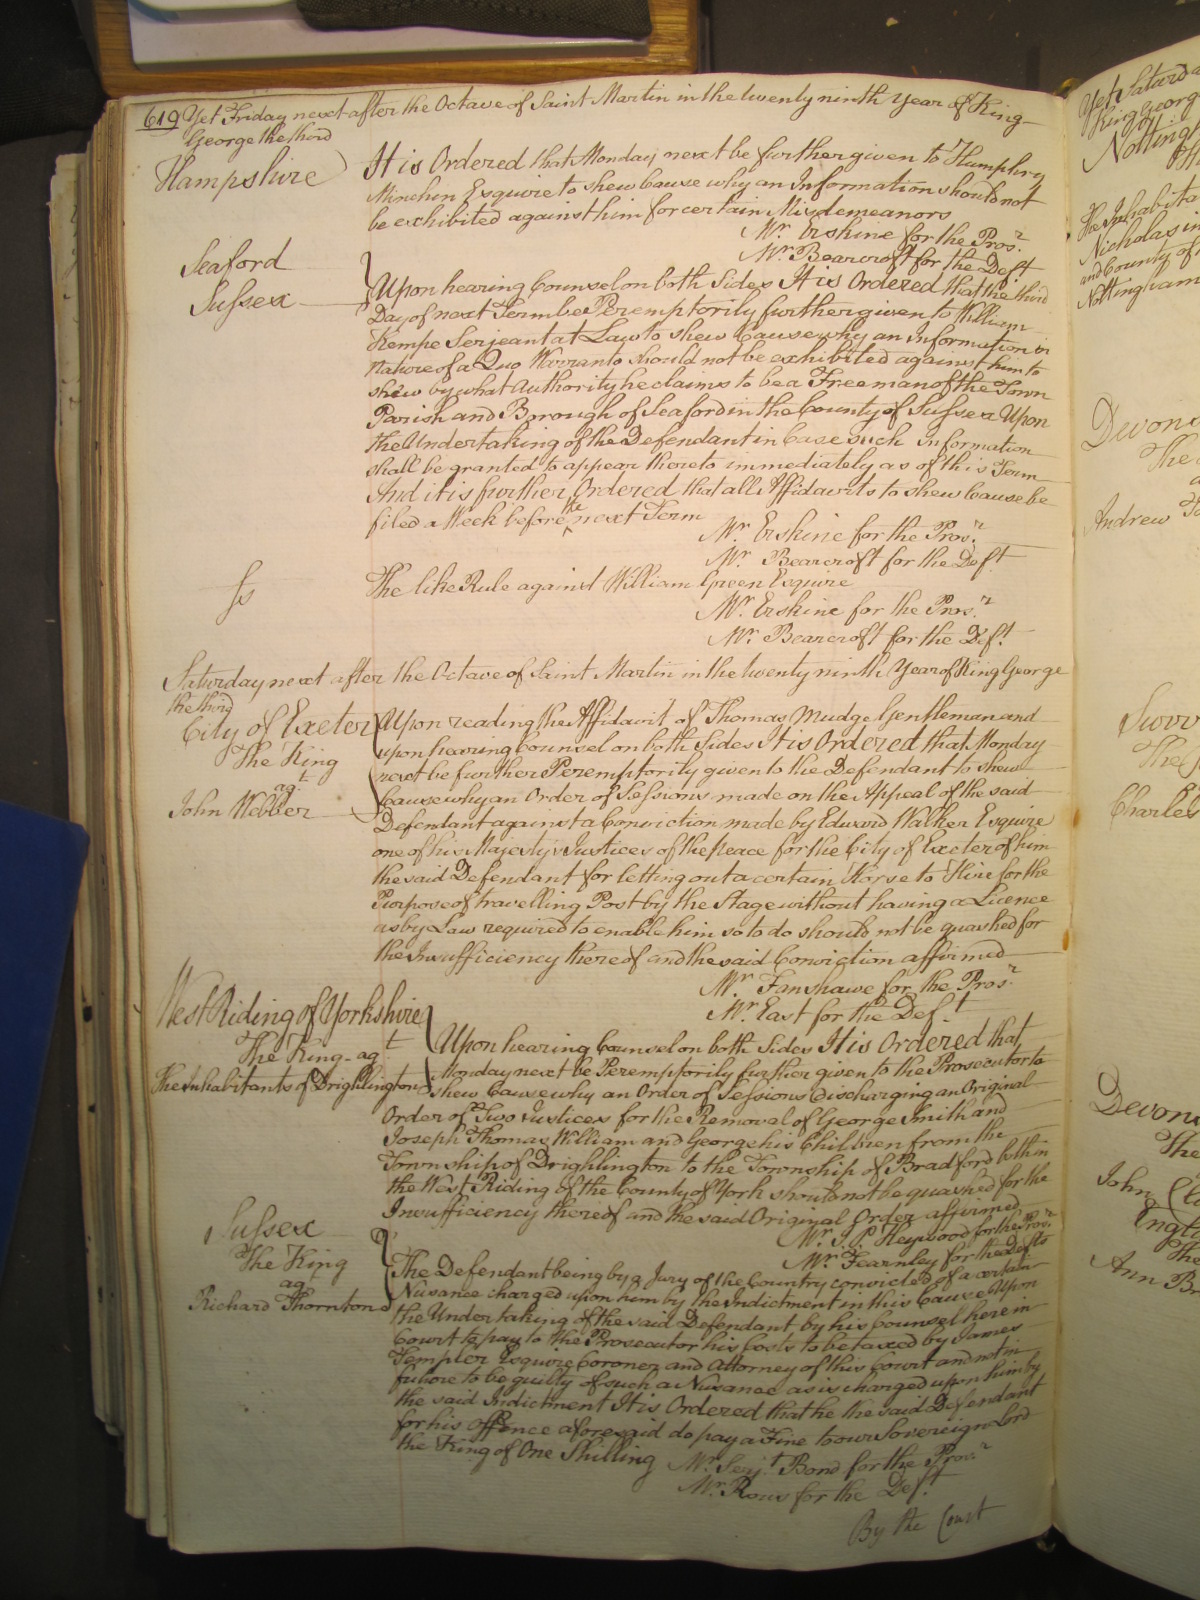 619 Yet Friday next after the Octave of Saint Martin in the twenty ninth Year of King
George the third
Hampshire
It is Ordered that Monday next be further given to Humphry
Minchin Esquire to shew Cause why an Information should not
be exhibited against him for certain Misdemeanors
Mr. Erskine for the Pros.r
Mr. Bearcroft for the Def.t
Seaford
Sussex
Upon hearing Counsel on both Sides It is Ordered that the third
Day of next Term be Peremptorily further given to William
Kempe Serjeant at Law to shew Cause why an Information in
nature of a Quo Warranto should not be exhibited against him to
shew by what Authority he claims to be a Freeman of the Town
Parish and Borough of Seaford in the County of Sussex Upon
the Undertaking of the Defendant in Case such Information
shall be granted to appear thereto immediately as of this Term
And it is further Ordered that all Affidavits to shew Cause be
filed a Week before the next Term
Mr. Erskine for the Pros.r
Mr. Bearcroft for the Def.t
Ss
The like Rule against William Green Esquire
Mr. Erskine for the Pros.r
Mr. Bearcroft for the Def.t
Saturday next after the Octave of Saint Martin in the twenty ninth Year of King George
the third
City of Exeter
The King
ag.t
John Webber
Upon reading the Affidavit of Thomas Mudge Gentleman and
upon hearing Counsel on both Sides It is Ordered that Monday
next be further Peremptorily given to the Defendant to shew
Cause why an Order of Sessions made on the Appeal of the said
Defendant against a Conviction made by Edward Walker Esquire
one of his Majesty's Justices of the peace for the City of Exeter of him
the said Defendant for letting out a certain Horse to Hire for the
Purpose of travelling Post by the Stage without having a Licence
as by Law required to enable him so to do should not be quashed for
the Insufficiency thereof and the said Conviction affirmed
Mr. Fanshawe for the Pros.r
Mr. East for the Def.t
West Riding of Yorkshire
The King ag.t
The Inhabitants of Drighlington
Upon hearing Counsel on both Sides It is Ordered that
Monday next be Peremptorily further given to the Prosecutor to
shew Cause why an Order of Sessions discharging an Original
Order of Two Justices for the Removal of George Smith and
Joseph Thomas William and George his Children from the
Township of Drighlington to the Township of Bradford both in
the West Riding of the County of York should not be quashed for the
Insufficiency thereof and the said Original Order affirmed
Mr. J. P. Heywood for the Pros.r
Mr. Fearnley for the Defts
Sussex
The King
ag.t
Richard Thornton
The Defendant being by a Jury of the Country convicted of a certain
Nusance charged upon him by the Indictment in this Cause Upon
the Undertaking of the said Defendant by his Counsel here in
Court to pay to the Prosecutor his Costs to be taxed by James
Templer Esquire Coroner and Attorney of this Court and not in
future to be guilty of such a Nusance as is charged upon him by
the said Indictment It is Ordered that he the said Defendant
for his offence aforesaid do pay a Fine to our Sovereign Lord
the King of One Shilling
Mr. Serj.t Bond for the Pros.r
Mr. Rous for the Def.t
By the Court
Nicholas in
and County of
Nottingham
Andrew
The
Charles
The
John
The
Ann